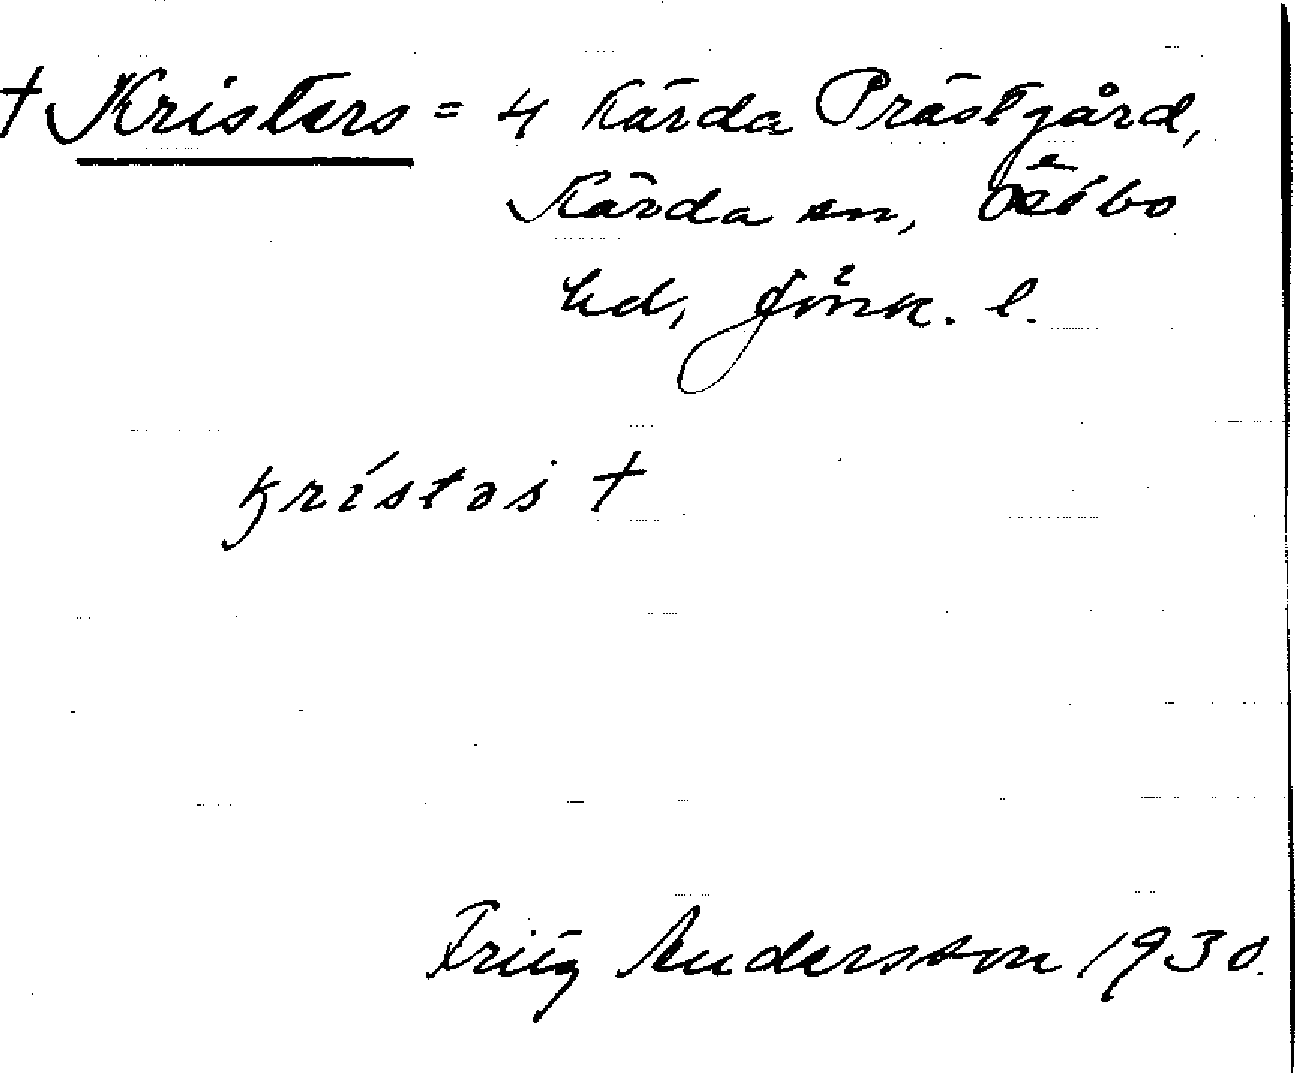 † Kristers = 4 Kärda Prästgård,
Kärda sn, Östbo
hd, Jönk. l.
krístəs †
Fritz Andersson 1930.